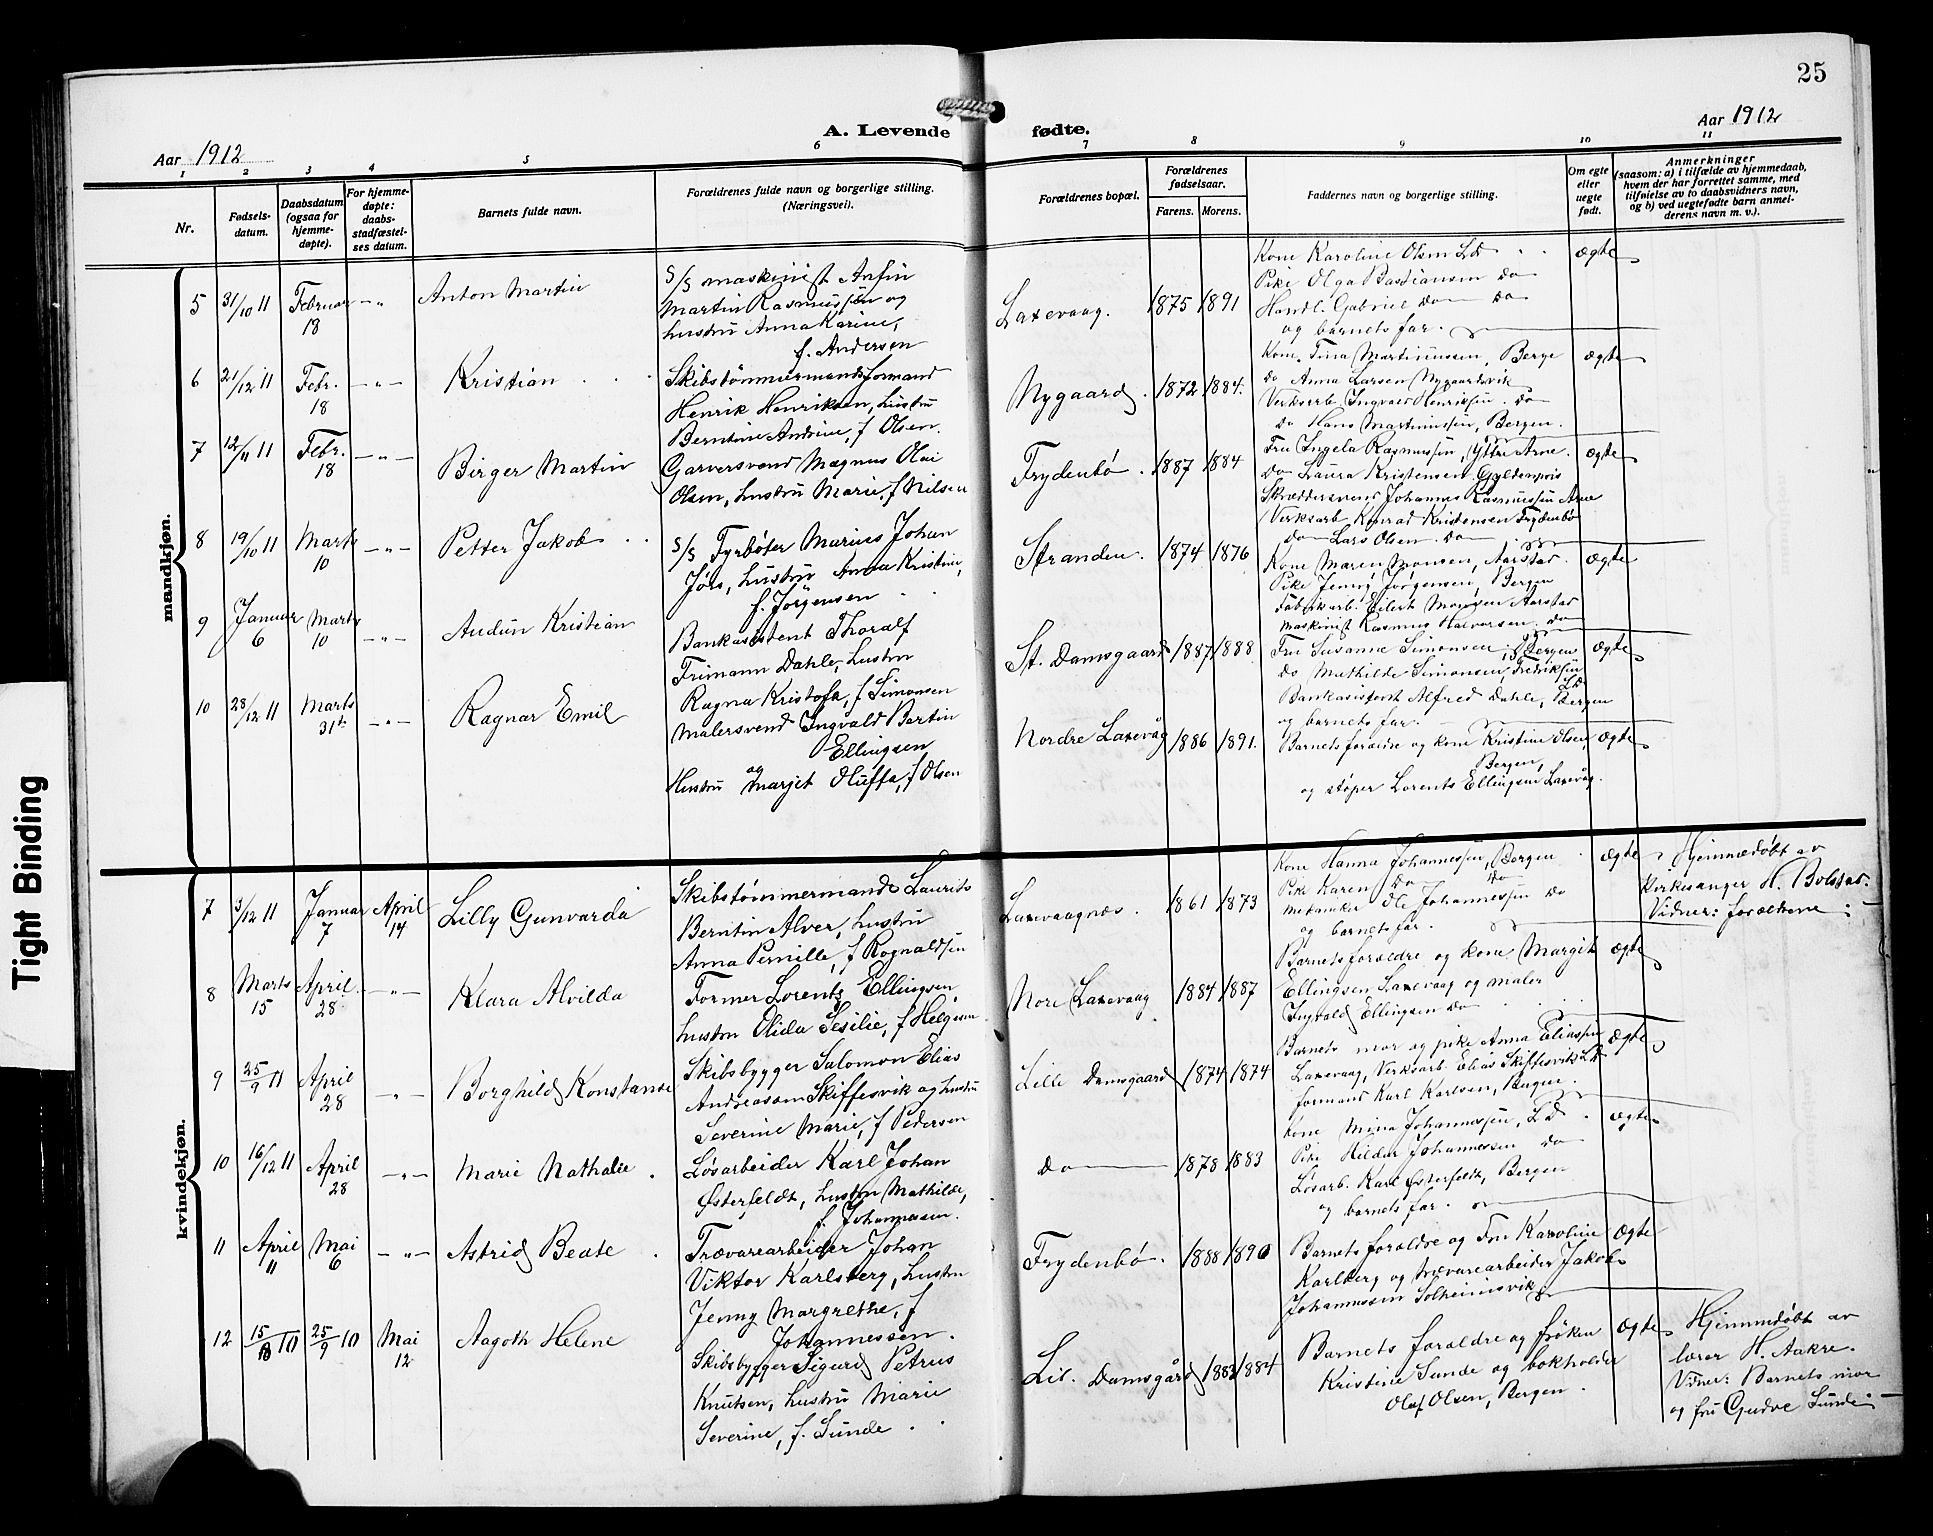 25
A. Levende fødte.
Aar 1912
Aar 1912
1 2 3 4 5 6 7 8 9 10 11
Nr.
Fødsels-
datum.
Daabsdatum
(ogsaa for
hjemme-
døpte).
For hjemme-
døpte:
daabs-
stadfæstel-
ses datum.
Barnets fulde navn.
Forældrenes fulde navn og borgerlige stilling.
(Næringsvei).
Forældrenes bopæl.
Forældrenes
fødselsaar.
Farens. Morens.
Faddernes navn og borgerlige stilling.
Om egte
eller
uegte
født.
Anmerkninger
(saasom: a) i tilfælde av hjemmedaab,
hvem der har forrettet samme, med
tilføielse av to daabsvidners navn,
og b) ved uegtefødte barn anmel-
derens navn m. v.).
mandkjøn.
5 31/10 11 Februar 18 -"- Anton Martin
S/S maskinist Anfin
Martin Rasmussen og
hustru Anna Karine,
f. Andersen
Laxevaag. 1875 1891
Kone Karoline Olsen Ld
Pike Olga Bastiansen do
Handl. Gabriel do do
og barnets far.
ægte
6 21/12 11 Febr. 18 -"- Kristian
Skibstømmermandsformand
Henrik Henriksen, hustru
Berntine Andrine, f Olsen.
Nygaard. 1872 1884.
Kone Tina Martinussen, Berge
do Anna Larsen Nygaardsvik
Verksarb. Ingvald Henriksen. do
do Hans Martinussen, Bergen.
ægte
7 12/11 11 Febr. 18 -"- Birger Martin
Garversvend Magnus Olai
Olsen, hustru Marie, f Nilsen
Frydenbø. 1887 1884
Fru Ingela Rasmussen, Ytre Arne.
do Laura Kristensen Gyldenpris
Skræddersvend Johannes Rasmussen Arne
Verksarb. Konrad Kristensen Frydenbø
do Lars Olsen. do
ægte
8 19/10 11 Marts 10 -"- Petter Jakob
S/S Fyrbøter Marius Johan
Jørs, hustru Anna Kristine,
f. Jørgensen
Stranden. 1874 1876
Kone Maren Monsen, Aarstad.
Pike Jenny Jørgensen, Bergen
Fabrikarb. Eilert Monsen Aarstad
maskinist Rasmus Halvorsen. do
ægte
9 Januar 6 Marts 10 -"- Audun Kristian
Bankasistent Thoralf
Frimann Dahle, hustru
Ragna Kristofa, f Simonsen
St. Damsgaard 1887 1888
Fru Susanne Simonsen, Bergen
do Mathilde Simonsen, Fredriksen
Ld
Bankasistent Alfred Dahle, Bergen
og barnets far.
ægte
10 28/12 11 Marts 31te -"- Ragnar Emil
Malersvend Ingvald Bertin
Ellingsen
Hustru og Marjet Oluffa, f Olsen
Nordre Laxevåg 1886 1891.
Barnets foraldre og kone Kristine Olsen,
Bergen,
og støper Lorents Ellingsen Laxevåg.
ægte
kvindekjøn.
7 3/12 11 Januar 7 April 14 Lilly Gunvarda
Skibstømmermand Laurits
Berntin Alver, hustru
Anna Pernille, f Rognaldsen
Laxevaagnæs. 1861 1873
Kone Hanna Johannessen, Bergen
Pike Karen do do
mekaniker Ole Johannessen do
og barnets far.
ægte
Hjemmedøbt av
kirkesanger H. Bolstad.
Vidner: foraldrene:
8 Marts 15 April 28 -"- Klara Alvilda
Former Lorentz Ellingsen
hustru Olida Sesilie, f Helgesen
Nore Laxevaag 1884 1887
Barnets foraldre og kone Margit
Ellingsen Laxevaag og maler
Ingvald Ellingsen do
ægte
9 25/9 11 April 28 -"- Borghild Konstanse
Skibsbygger Salomon Elias
Andreassen Skiffesvik og hustru
Severine Marie, f Pedersen
Lille Damsgaard 1874 1874
Barnets mor og pike Anna Eliassen
Laxevaag, Verksarb. Elias Skiffesvik Ld
formand Karl Karlsen, Bergen.
ægte
10 16/12 11 April 28 -"- Marie Nathalie
Løsarbeider Karl Johan
Østerfeldt, hustru Mathilde,
f. Johannessen.
do 1878 1883
kone Mina Johannessen, Ld
Pike Hildur Johannessen do
Løsarb. Karl Østerfeldt, Bergen
og barnets far.
ægte
11 April 11 Mai 6 -"- Astrid Beate
Trævarearbeider Johan
Viktor Karlsberg, hustru
Jenny Margrethe, f
Johannessen.
Frydenbø. 1888 1890
Barnets foraldre og Fru Karoline
Karlberg og trævarearbeider Jakob
Johannessen Solheimsvik
ægte
12 15/8 10 25/9 10 Mai 12 Aagoth Helene
Skibsbygger Sigurd Petrus
Knutsen, hustru Marie
Severine, f. Sunde
Lil. Damsgård 1883 1884
Barnets foraldre og frøken
Kristine Sunde og bokholder
Olaf Olsen, Bergen.
ægte
Hjemmedøbt av
lærer H. Aakre.
Vidner: Barnets mor
og fru Gudve Sunde
Tight Binding